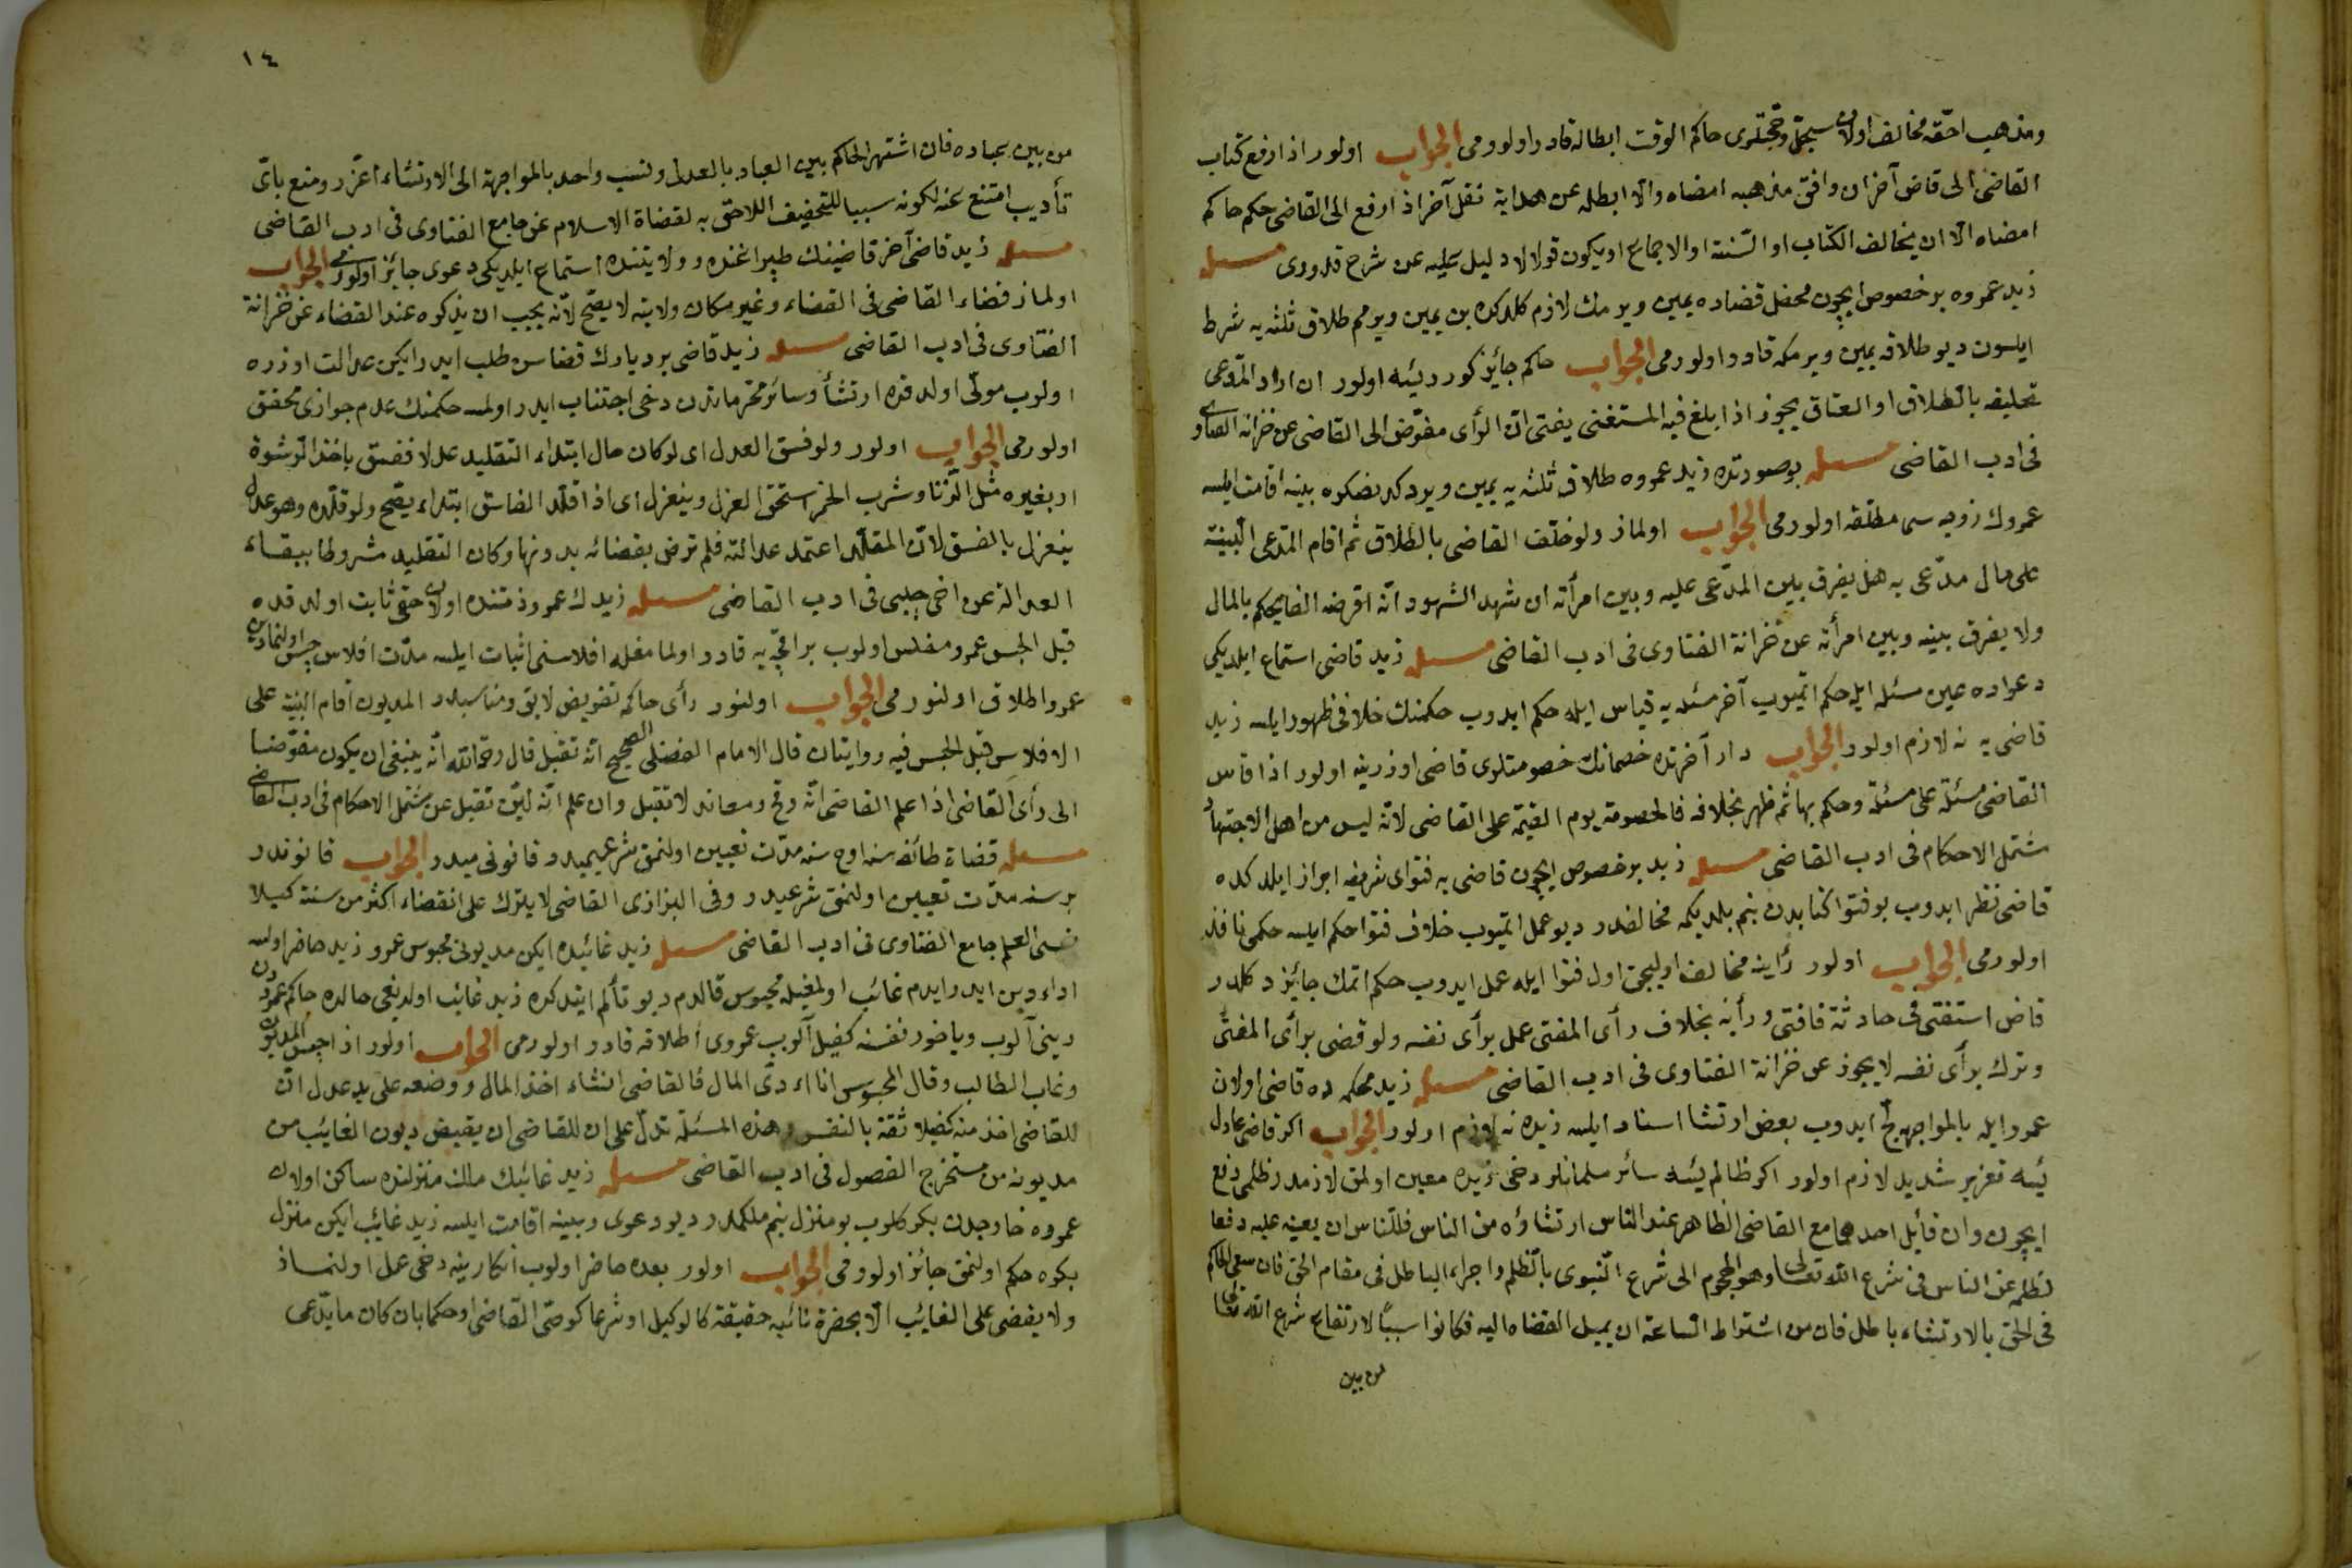 ومذهب احقه مخالف اولان سجل وحجتلرى حاكم الوقت ابطاله قادر اولورمى الجواب اولور اذا رفع كتاب
القاضى الى قاض آخر ان وافق مذهبه امضاه والا ابطله عن هداية نقل آخر اذا رفع الى القاضى حكم حاكم
امضاه الا ان يخالف الكتاب او السنة او الاجماع او يكون قولا لا دليل عليه عن شرح قدورى مسئله
زيد عمروه بر خصوص ايچون محفل قضاده يمين ويرمك لازم كلدكده بن يمين ويرمم طلاق ثلثه يه شرط
ايلسون ديو طلاقه يمين ويرمكه قادر اولورمى الجواب حاكم جائز كورديسه اولور ان اراد المدعى
تحليفه بالطلاق او العتاق يجوز اذا بلغ فيه المستفتى يفتى ان الرأى مفوض الى القاضى عن خزانة الفتاوى
فى ادب القاضى مسئله بو صورتده زيد عمروه طلاق ثلثه يه يمين ويردكدنصكره بينه اقامت ايلسه
عمروك زوجه سى مطلقه اولورمى الجواب اولماز ولو حلف القاضى بالطلاق ثم اقام المدعى البينة
على مال مدعى به هل يفرق بين المدعى عليه وبين امرأته ان شهد الشهود انه اقرضه الفا يحكم بالمال
ولا يفرق بينه وبين امرأته عن خزانة الفتاوى فى ادب القاضى مسئله زيد قاضى استماع ايلديكى
دعواده عين مسئله ايله حكم اتميوب آخر مسئله يه قياس ايله حكم ايدوب حكمنك خلافى ظهور ايلسه زيد
قاضى يه نه لازم اولور الجواب دار آخرتده خصمانك خصومتلرى قاضى اوزرينه اولور اذا قاس
القاضى مسئلة على مسئلة وحكم بها ثم ظهر بخلافه فالخصومة يوم القيمة على القاضى لانه ليس من اهل الاجتهاد
مشتمل الاحكام فى ادب القاضى مسئله زيد بر خصوص ايچون قاضى يه فتواى شريفه ابراز ايلدكده
قاضى نظر ايدوب بو فتوا كتابدن بنم بلديكمه مخالفدر ديو عمل اتميوب خلاف فتوا حكم ايلسه حكمى نافذ
اولورمى الجواب اولور رأينه مخالف اوليجق اول فتوا ايله عمل ايدوب حكم اتمك جائز دكلدر
قاض استفتى فى حادثة فافتى ورأيه بخلاف رأى المفتى عمل برأى نفسه ولو قضى برأى المفتى
وترك برأى نفسه لا يجوز عن خزانة الفتاوى فى ادب القاضى مسئله زيد محكمه ده قاضى اولان
عمرو ايله بالمواجهه ايدوب بعض ارتشا اسناد ايلسه زيده نه لازم اولور الجواب اكر قاضى عادل
ئيسه تعزير شديد لازم اولور اكر ظالم ئيسه سائر مسلمانلر دخى زيده معين اولمق لازمدر ظلمى دفع
ايچون وان قابل احد مع القاضى الظاهر عند الناس ارتشاؤه من الناس فللناس ان يعينه عليه دفعا
لظلمه عن الناس فى شرع الله تعالى وهو الهجوم الى شرع النبوى بالظلم واجراء الباطل فى مقام الحق فان سعى الحاكم
فى الحق بالارتشاء باطل فان من اشتراط الساعة ان يميل القضاء اليه فكانوا سببا لارتفاع شرع الله تعالى
من بين
١٤
من بين عباده فان اشتهر الحاكم بين العباد بالعدل ونسب واحد بالمواجهة الى الارتشاء اعزر ومنع باى
تأديب امتنع عنه لكونه سببا للتخفيف اللاحق به لقضاة الاسلام عن جامع الفتاوى فى ادب القاضى
مسئله زيد قاضى آخر قاضينك طپراغنده وولايتنده استماع ايلديكى دعوى جائز اولورمى الجواب
اولماز قضاء القاضى فى القضاء وغير مكان ولايته لا يصح لانه يجب ان يذكره عند القضاء عن خزانة
الفتاوى فى ادب القاضى مسئله زيد قاضى بر ديارك قضاسن طلب ايدر ايكن عدالت اوزره
اولوب مولى اولدقده ارتشأ وسائر محرماتدن دخى اجتناب ايدر اولمسه حكمنك عدم جوازى محقق
اولورمى الجواب اولور ولو فسق العدل اى لو كان حال ابتداء التقليد عدلا ففسق باخذ الرشوة
او بغيره مثل الزنا وشرب الخمر استحق العزل وينعزل اى اذا قلد الفاسق ابتداء يصح ولو قلده وهو عدل
ينعزل بالفسق لان المقلد اعتمد عدالته فلم ترض بقضائه بدونها وكان التقليد مشروطا ببقاء
العدالة عن اخى چلبى فى ادب القاضى مسئله زيدك عمرو ذمتنده اولان حقى ثابت اولدقده
قبل الحبس عمرو مفلس اولوب بر اقچه يه قادر اولمامغله افلاسنى اثبات ايلسه مدت افلاس حبس اولنمادين
عمرو اطلاق اولنورمى الجواب اولنور رأى حاكمه تفويض لايق ومناسبدر المديون اقام البينة على
الافلاس قبل الحبس فيه روايتان قال الامام الفضلى الصحيح انه تقبل قال رحمه الله انه ينبغى ان يكون مفوضا
الى رأى القاضى اذا علم القاضى انه وقح ومعاند لا تقبل وان علم انه لين تقبل عن مشتمل الاحكام فى ادب القاضى
مسئله قضاة طائفه سنه اوچ سنه مدت تعيين اولنمق شرعيميدر قانونى ميدر الجواب قانوندر
بر سنه مدت تعيين اولنمق شرعيدر وفى البزازى القاضى لا يترك على انقضاء اكثر من سنة كيلا
ينسى العلم جامع الفتاوى فى ادب القاضى مسئله زيد غائبده ايكن مديونى محبوس عمرو زيد حاضر اولسه
اداء دين ايدر ايدم غائب اولمغيله محبوس قالدم ديو تألم ايتدكده زيد غائب اولديغى حالده حاكم عمرودن
دينى آلوب وياخود نفسنه كفيل آلوب عمروى اطلاقه قادر اولورمى الجواب اولور اذا حبس المديون
وغاب الطالب وقال المحبوس انا اؤدى المال فالقاضى ان شاء اخذ المال ووضعه على يد عدل ان
للقاضى اخذ منه كفيلا ثقة بالنفس وهذه المسئلة تدل على ان للقاضى ان يقبض ديون الغائب من
مديونه من مستخرج الفصول فى ادب القاضى مسئله زيد غائبك ملك منزلنده ساكن اولان
عمروه خارجدن بكر كلوب بو منزل بنم ملكمدر ديو دعوى وبينه اقامت ايلسه زيد غائب ايكن منزل
بكره حكم اولنمق جائز اولورمى الجواب اولور بعده حاضر اولوب انكارينه دخى عمل اولنماز
ولا يقضى على الغائب الا بحضرة نائبه حقيقة كالوكيل او شرعا كوصى القاضى او حكما بان كان ما يدعى